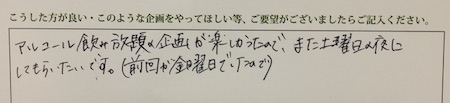 こうした方が良い・このような企画をやってほしい等、ご要望がございましたらご記入ください。
アルコール飲み放題の企画が楽しかったので、また土曜日の夜に
してもらいたいです。(前回が金曜日でしたので)